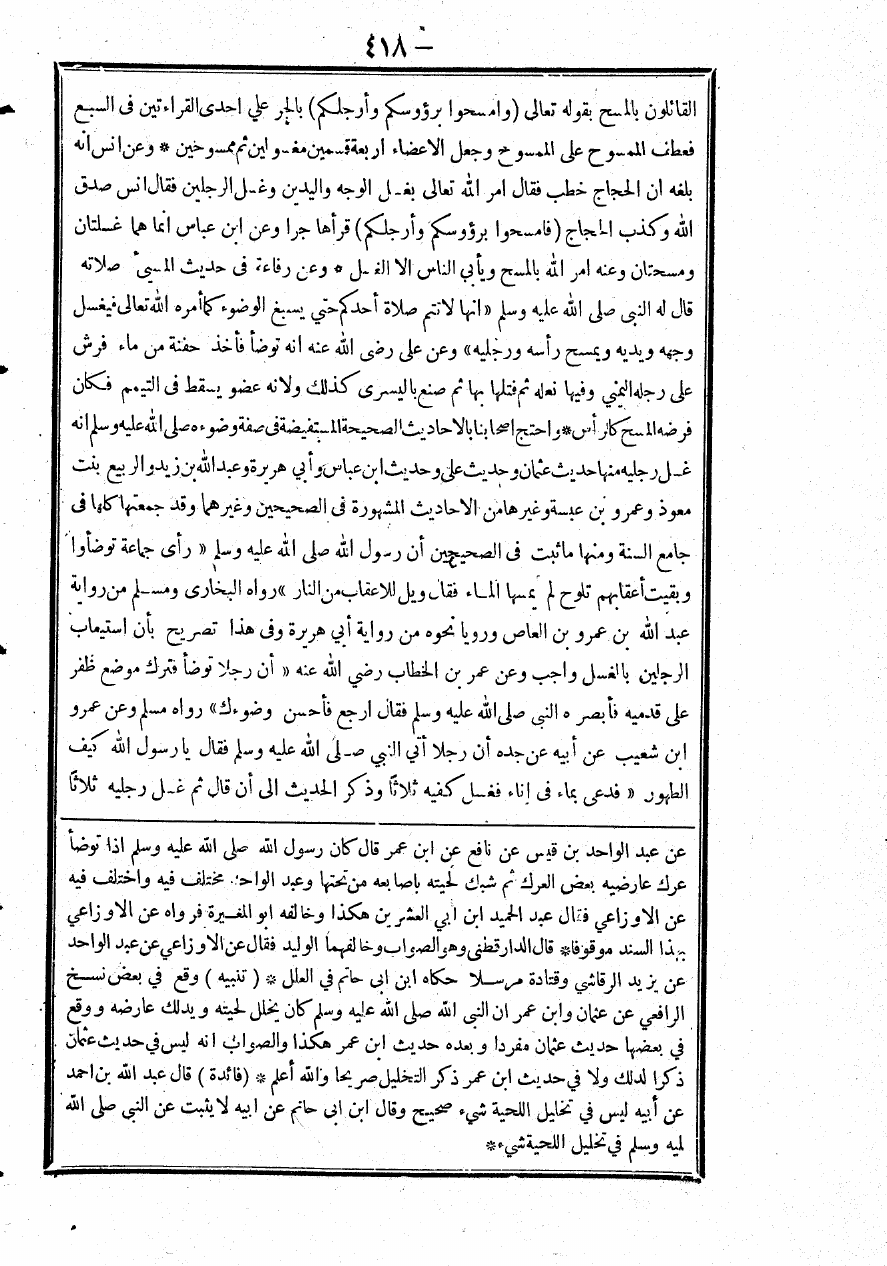 ٤١٨ –
القائلون بالمسح بقوله تعالى (وامسحوا برؤوسكم وأرجلكم) بالجر علي احدى القراءتين فى السبع
فعطف الممسوح على الممسوح وجعل الاعضاء اربعة قسمين مغسولين ثم ممسوحين * وعن انس انه
بلغه ان الحجاج خطب فقال امر الله تعالى بغسل الوجه واليدين وغسل الرجلين فقال انس صدق
الله وكذب الحجاج (فامسحوا برؤوسكم وأرجلكم) قرأها جرا وعن ابن عباس انما هما غسلتان
ومسحتان وعنه امر الله بالمسح ويأبي الناس الا الغسل * وعن رفاعة فى حديث المسيئ صلاته
قال له النبى صلى الله عليه وسلم «انها لا تتم صلاة أحدكم حتي يسبغ الوضوء كما أمره الله تعالى فيغسل
وجهه ويديه ويمسح رأسه ورجليه» وعن على رضى الله عنه انه توضأ فأخذ حفنة من ماء فرش
على رجله اليمني وفيها نعله ثم فتلها بها ثم صنع باليسرى كذلك ولانه عضو يسقط فى التيمم فكان
فرضه المسح كالرأس * واحتج اصحابنا بالاحاديث الصحيحة المستفيضة فى صفة وضوءه صلى الله عليه وسلم انه
غسل رجليه منها حديث عثمان وحديث على وحديث ابن عباس وأبي هريرة وعبد الله بن زيد والربيع بنت
معوذ وعمرو بن عبسة وغيرها من الاحاديث المشهورة فى الصحيحين وغيرهما وقد جمعتها كلها فى
جامع السنة ومنها ماثبت فى الصحيحين أن رسول الله صلى الله عليه وسلم « رأى جماعة توضأوا
وبقيت أعقابهم تلوح لم يمسها الماء فقال ويل للاعقاب من النار » رواه البخارى ومسلم من رواية
عبد الله بن عمرو بن العاص ورويا نحوه من رواية أبي هريرة وفى هذا تصريح بأن استيعاب
الرجلين بالغسل واجب وعن عمر بن الخطاب رضي الله عنه « أن رجلا توضأ فترك موضع ظفر
على قدميه فأبصره النبى صلى الله عليه وسلم فقال ارجع فأحسن وضوءك» رواه مسلم وعن عمرو
ابن شعيب عن أبيه عن جده أن رجلا أتي النبي صلى الله عليه وسلم فقال يا رسول الله كيف
الطهور « فدعى بماء فى إناء فغسل كفيه ثلاثا وذكر الحديث الى أن قال ثم غسل رجليه ثلاثا
عن عبد الواحد بن قيس عن نافع عن ابن عمر قال كان رسول الله صلى الله عليه وسلم اذا توضأ
عرك عارضيه بعض العرك ثم شبك لحيته باصابعه من تحتها وعبد الواحد مختلف فيه واختلف فيه
عن الاوزاعي فقال عبد الحميد ابن ابي العشرين هكذا وخالفه ابو المغيرة فرواه عن الاوزاعي
بهذا السند موقوفا * قال الدارقطنى وهو الصواب وخالفهما الوليد فقال عن الاوزاعي عن عبد الواحد
عن يزيد الرقاشي وقتادة مرسلا حكاه ابن ابى حاتم في العلل * ( تنبيه ) وقع في بعض نسخ
الرافعي عن عثمان وابن عمر ان النبى الله صلى الله عليه وسلم كان يخلل لحيته ويدلك عارضه ووقع
في بعضها حديث عثمان مفردا وبعده حديث ابن عمر هكذا والصواب انه ليس في حديث عثمان
ذكرا لدلك ولا في حديث ابن عمر ذكر التخليل صريحا والله أعلم * (فائدة ) قال عبد الله بن احمد
عن أبيه ليس في تخليل اللحية شيء صحيح وقال ابن ابى حاتم عن ابيه لا يثبت عن النبي صلى الله
ليه وسلم في تخليل اللحية شيء *